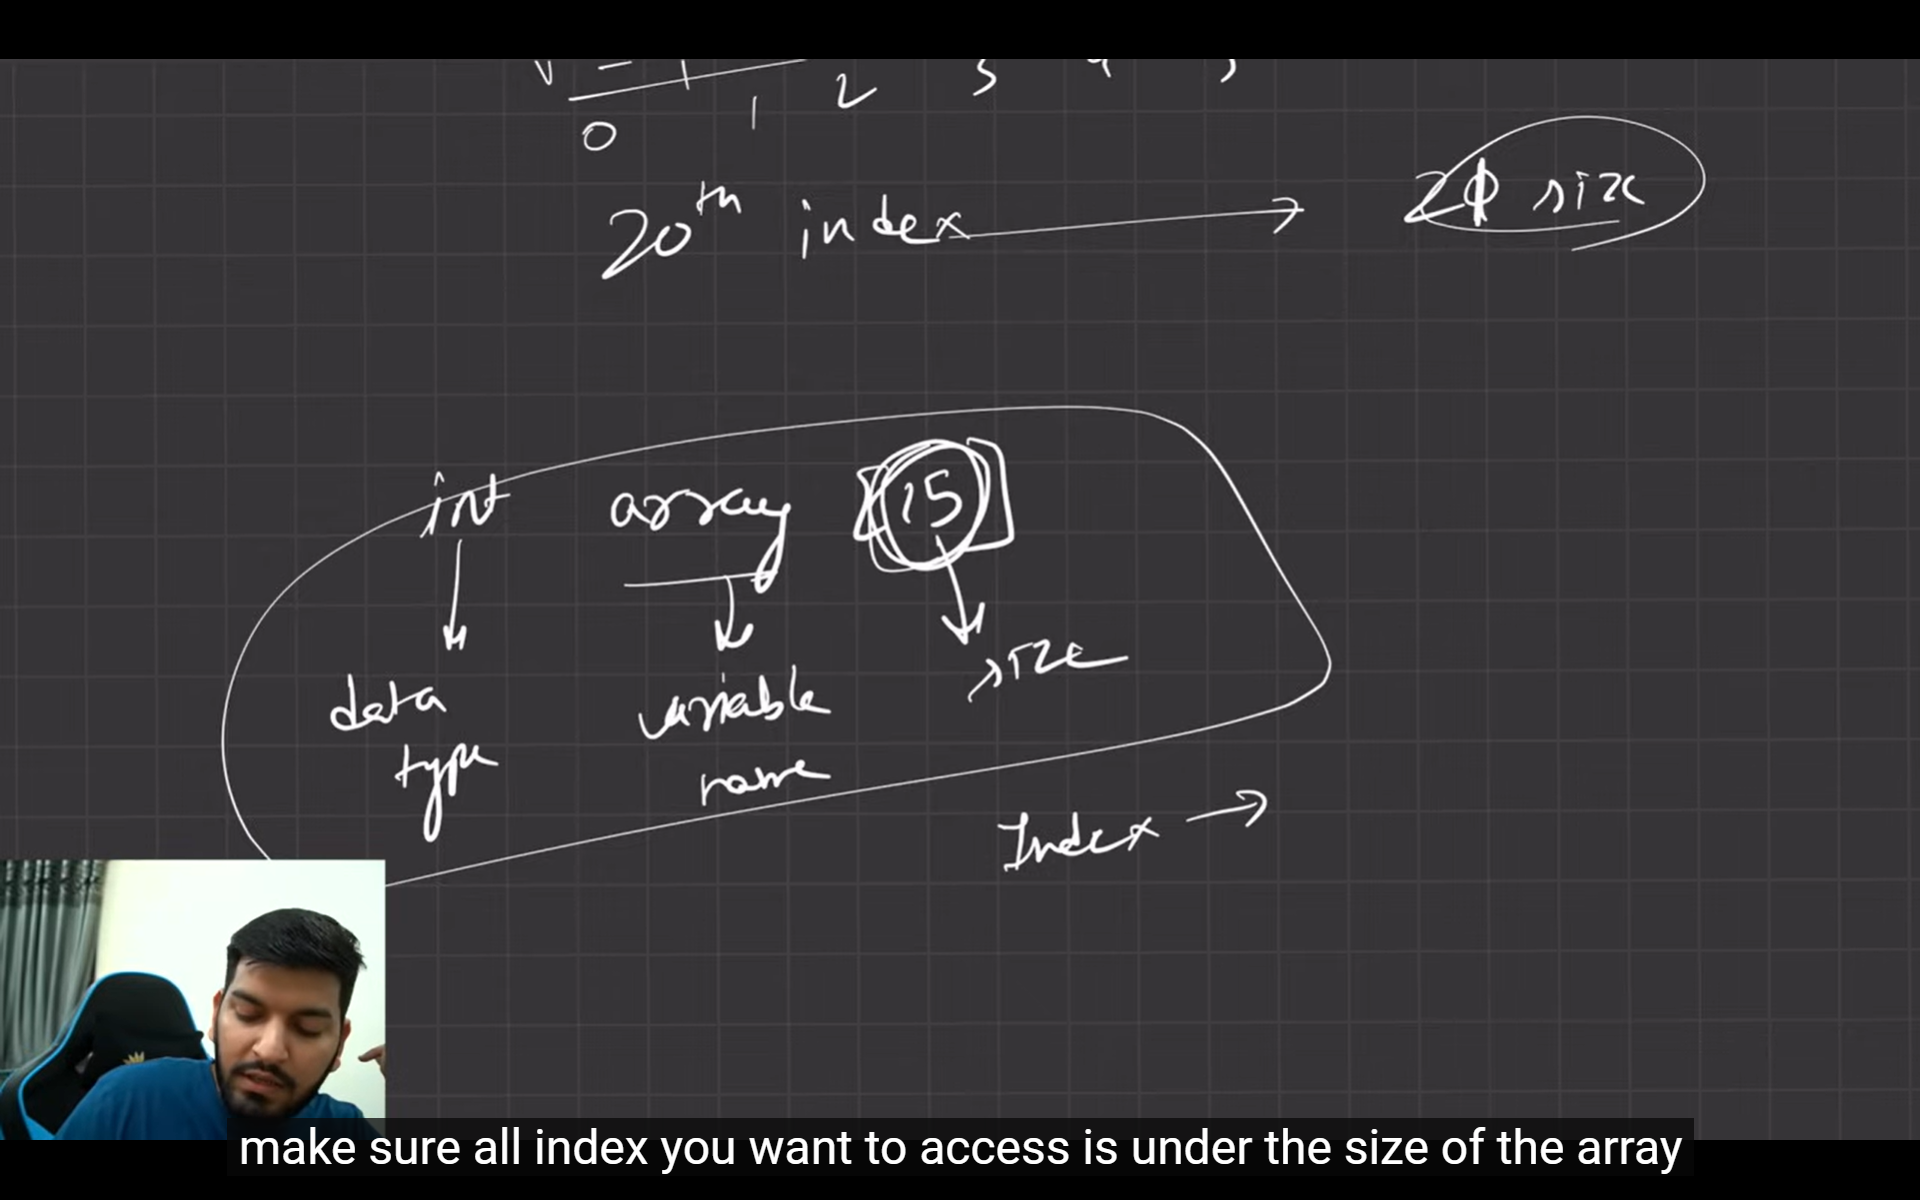 0 1 2 3 4 5
20th index → 21 size
int array [15]
data type variable name size
Index →
make sure all index you want to access is under the size of the array